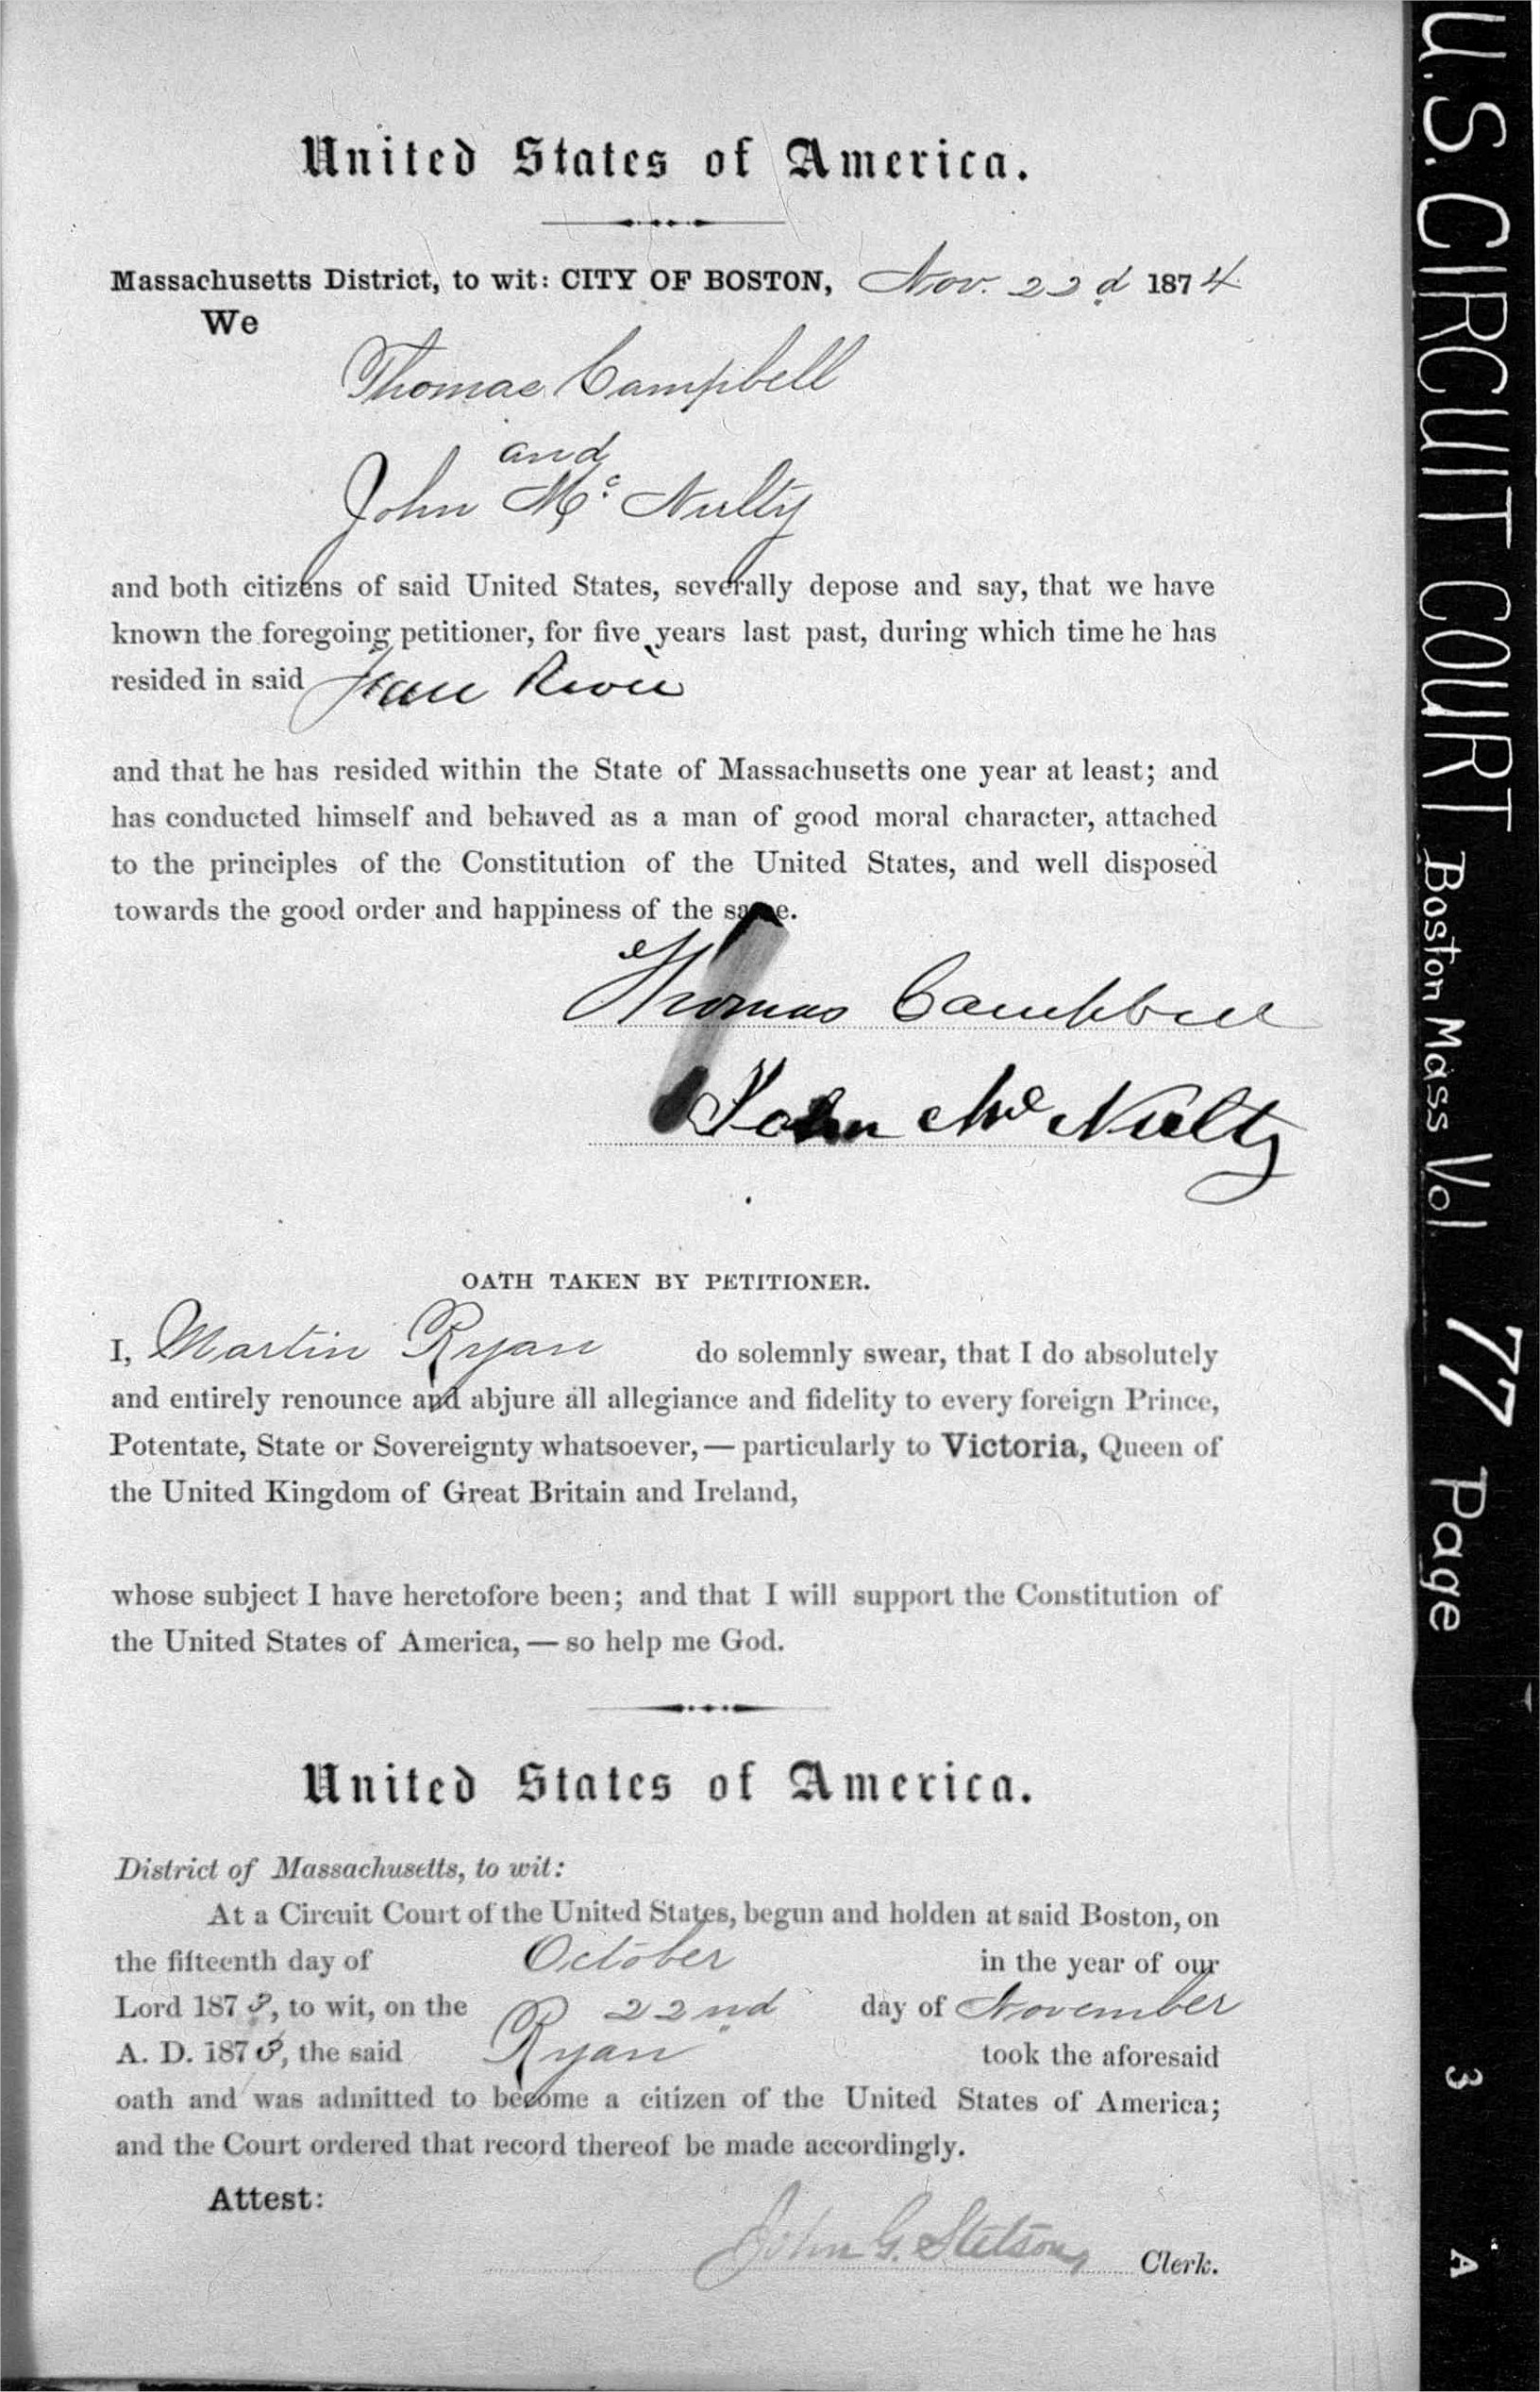 United States of America.
Massachusetts District, to wit: CITY OF BOSTON, Nov. 22d 1874
We
Thomas Campbell
and
John Mc Nulty
and both citizens of said United States, severally depose and say, that we have
known the foregoing petitioner, for five years last past, during which time he has
resided in said Fall River
and that he has resided within the State of Massachusetts one year at least; and
has conducted himself and behaved as a man of good moral character, attached
to the principles of the Constitution of the United States, and well disposed
towards the good order and happiness of the same.
Thomas Campbell
John Mc Nulty
OATH TAKEN BY PETITIONER.
I, Martin Ryan do solemnly swear, that I do absolutely
and entirely renounce and abjure all allegiance and fidelity to every foreign Prince,
Potentate, State or Sovereignty whatsoever, — particularly to Victoria, Queen of
the United Kingdom of Great Britain and Ireland,
whose subject I have heretofore been; and that I will support the Constitution of
the United States of America, — so help me God.
United States of America.
District of Massachusetts, to wit:
At a Circuit Court of the United States, begun and holden at said Boston, on
the fifteenth day of October in the year of our
Lord 1873, to wit, on the 22nd day of November
A. D. 1873, the said Ryan took the aforesaid
oath and was admitted to become a citizen of the United States of America;
and the Court ordered that record thereof be made accordingly.
Attest:
John G. Stetson, Clerk.
U.S. CIRCUIT COURT Boston Mass Vol 77 Page 3 A